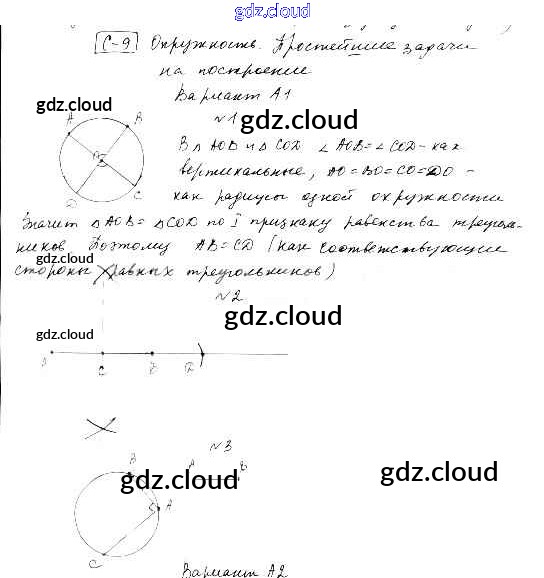 gdz.cloud
С-9 Окружность. Простейшие задачи
на построение
Вариант А1
gdz.cloud
№1 gdz.cloud
A B
O
D C
В △ AOB и △ COD ∠ AOB = ∠ COD - как
вертикальные, AO = BO = CO = DO -
как радиусы одной окружности
Значит △ AOB = △ COD по I признаку равенства треуголь-
ников. Поэтому AB = CD (как соответствующие
gdz.cloud
стороны равных треугольников)
№2
gdz.cloud
gdz.cloud
C
№3
B A B
gdz.cloud gdz.cloud
A
C
Вариант А2